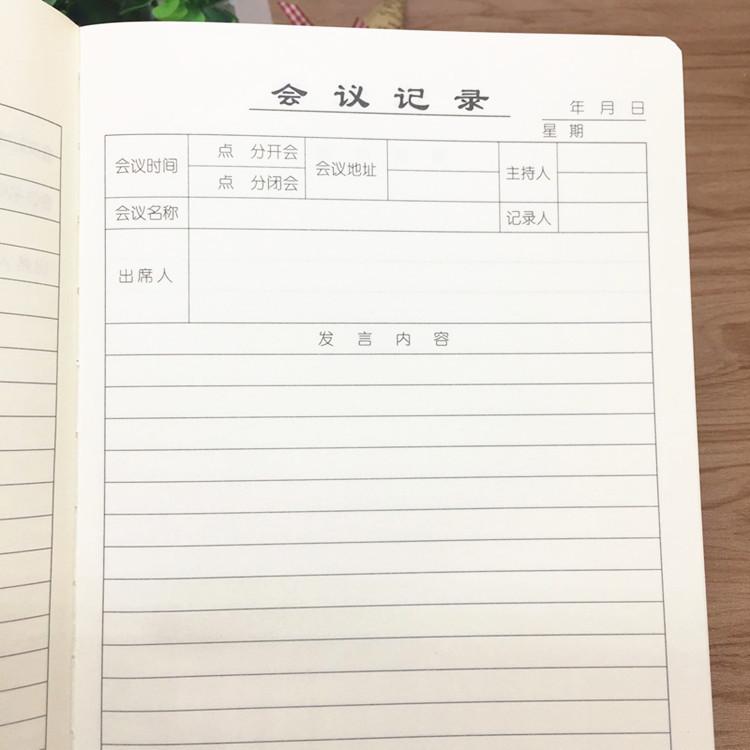 会议记录
年 月 日
星 期
会议时间 点 分开会 会议地址 主持人
点 分闭会
会议名称 记录人
出席人
发 言 内 容